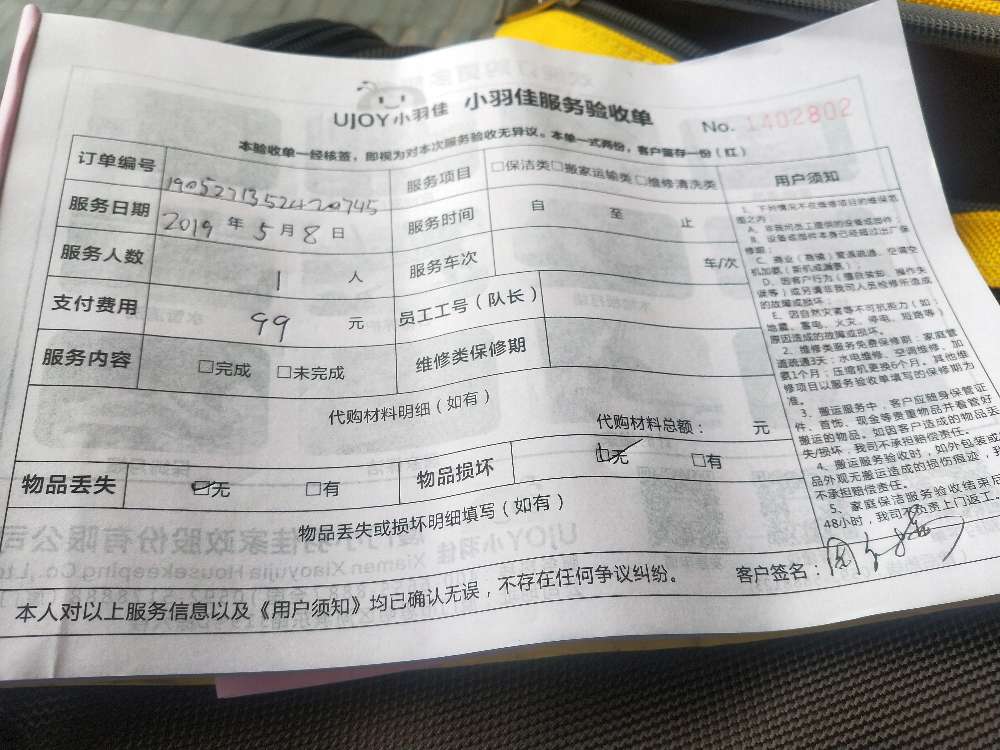 UJOY小羽佳 小羽佳服务验收单
No. 1402802
本验收单一经核签，即视为对本次服务验收无异议。本单一式两份，客户留存一份（红）
订单编号 190527135242 0745 服务项目 □保洁类□搬家运输类□维修清洗类 用户须知
服务日期 2019 年 5 月 8 日 服务时间 自 至 止
服务人数 1 人 服务车次 车/次
支付费用 99 元 员工工号（队长）
服务内容 □完成 □未完成 维修类保修期
代购材料明细（如有）
代购材料总额： 元
物品丢失 □无 □有 物品损坏 □无 □有
物品丢失或损坏明细填写（如有）
客户签名：
本人对以上服务信息以及《用户须知》均已确认无误，不存在任何争议纠纷。
1、下列情况不在维修项目的维保范
围之内：
A、非我司员工提供的设备或部件；
B、设备或部件本身已经超过出厂保
修期；
C、商业（商铺）管道疏通、空调空
机加氨（新机或漏氨）；
D、因客户行为（擅自装卸、操作失
误等）或另请非我司人员检修所造成
的故障或损坏；
E、因自然灾害等不可抗拒力（如：
地震、蓄电、火灾、停电、短路等）
原因造成的故障或损坏。
2、维修类服务免费保修期：家庭管
道疏通3天；水电维修、空调维修、加
氨1个月；压缩机更换6个月。其他维
修项目以服务验收单填写的保修期为
准。
3、搬运服务中，客户应随身保管证
件、首饰、现金等贵重物品并看管好
搬运的物品。如因客户造成的物品丢
失/损坏，我司不承担赔偿责任。
4、搬运服务验收时，如外包装或
品外观无搬运造成的损伤痕迹，我
不承担赔偿责任。
5、家庭保洁服务验收结束后
48小时，我司不负责上门返工。